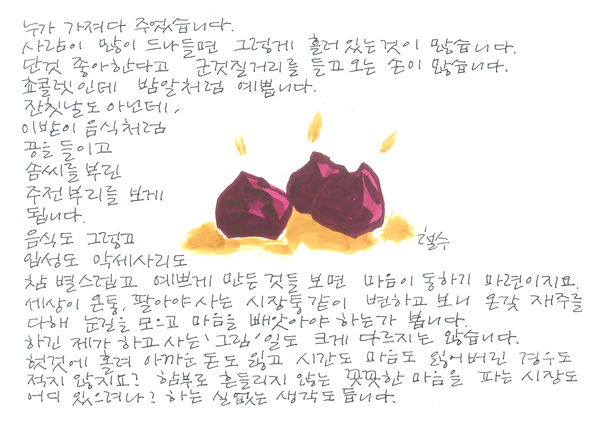 누가 가져다 주었습니다.
사람이 많이 드나들면 그렇게 흘러있는것이 많습니다.
단것 좋아한다고 군것질거리를 들고 오는 손이 많습니다.
쵸콜렛인데 밤알처럼 예쁩니다.
잔칫날도 아닌데,
이받이 음식처럼
공을 들이고
솜씨를 부린
주전부리를 보게
됩니다.
음식도 그렇고
입성도 악세사리도
참 별스럽고 예쁘게 만든 것들 보면 마음이 동하기 마련이지요.
세상이 온통, 팔아야 사는 시장통같이 변하고 보니 온갖 재주를
다해 눈길을 모으고 마음을 빼앗아야 하는가 봅니다.
하긴 제가 하고 사는 '그림' 일도 크게 다르지는 않습니다.
헛것에 홀려 아까운 돈도 잃고 시간도 마음도 잃어버린 경우도
적지 않지요? 함부로 흔들리지 않는 꿋꿋한 마음을 파는 시장도
어디 있으려나? 하는 실없는 생각도 듭니다.
철수